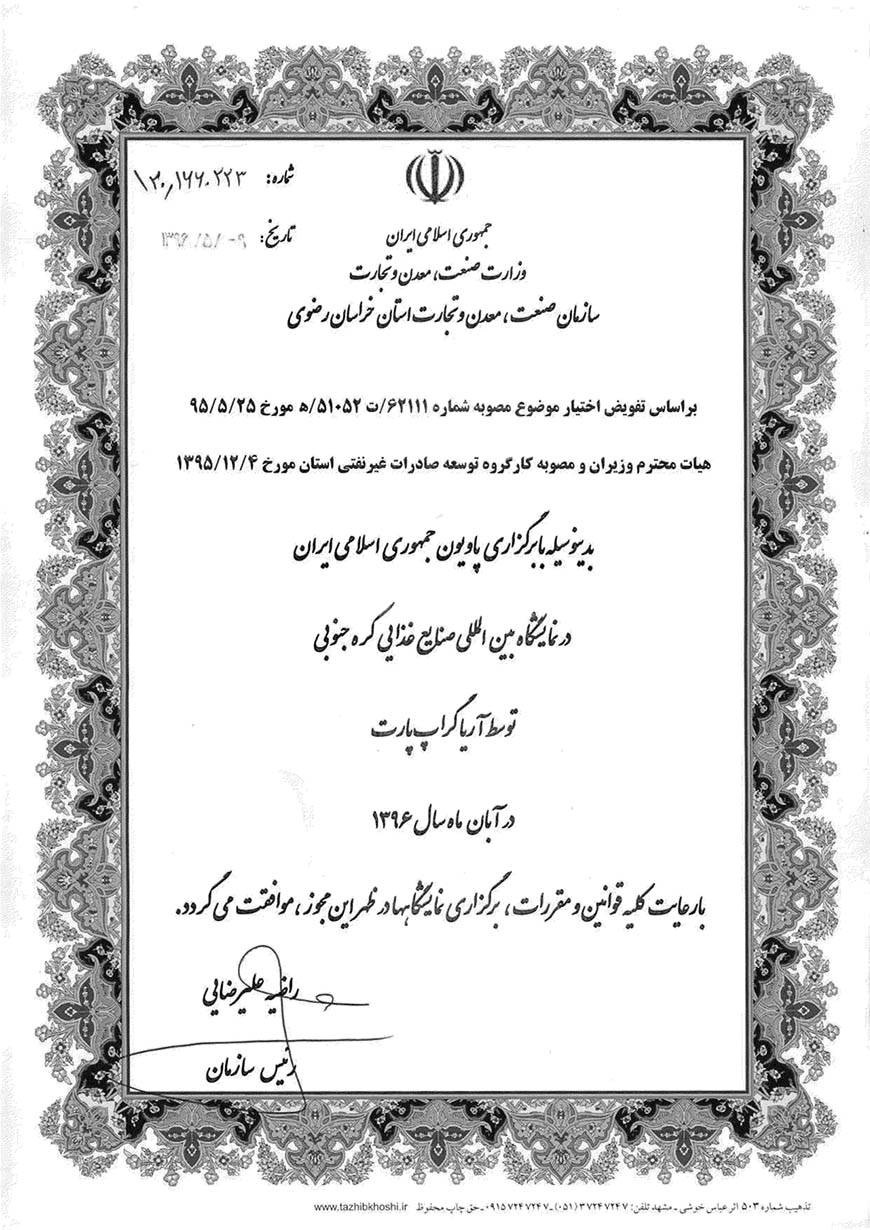 شماره: ۱۲۰٫۱۶۶۰۲۲۳
تاریخ: ۱۳۹۶/۵/۰۹
جمهوری اسلامی ایران
وزارت صنعت، معدن و تجارت
سازمان صنعت، معدن و تجارت استان خراسان رضوی
براساس تفویض اختیار موضوع مصوبه شماره ۶۲۱۱۱/ت ۵۱۰۵۲/ه مورخ ۹۵/۵/۲۵
هیات محترم وزیران و مصوبه کارگروه توسعه صادرات غیرنفتی استان مورخ ۱۳۹۵/۱۲/۴
بدینوسیله با برگزاری پاویون جمهوری اسلامی ایران
در نمایشگاه بین المللی صنایع غذایی کره جنوبی
توسط آریا گراپ پارت
در آبان ماه سال ۱۳۹۶
با رعایت کلیه قوانین و مقررات، برگزاری نمایشگاهها در ظهر این مجوز، موافقت می گردد.
راضیه علیرضایی
رئیس سازمان
تذهیب شماره ۵۰۳ اثر عباس خوشی ـ مشهد تلفن: ۳۷۲۴۷۲۴۷ (۰۵۱) ـ ۰۹۱۵۷۲۴۷۲۴۷ ـ حق چاپ محفوظ www.tazhibkhoshi.ir